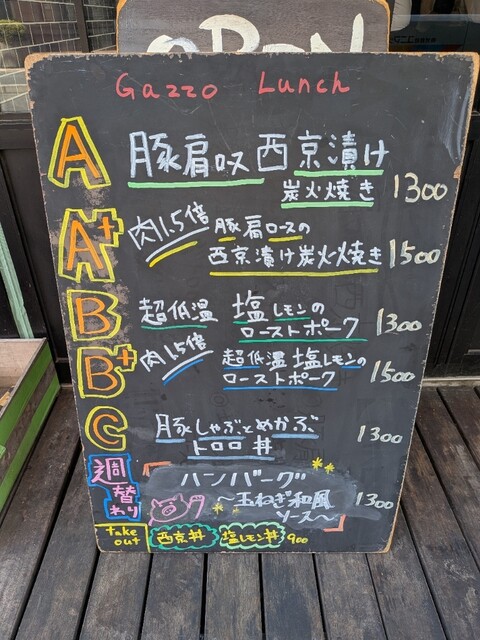 OPEN
Gazzo Lunch
A 豚肩ロス 西京漬け
炭火焼き 1300
A+ 肉1.5倍 豚肩ロースの
西京漬け炭火焼き 1500
B 超低温 塩レモンの
ローストポーク 1300
B+ 肉1.5倍 超低温塩レモンの
ローストポーク 1500
C 豚しゃぶとめかぶ
トロロ丼 1300
週替わり ハンバーグ
〜玉ねぎ和風
ソース〜 1300
take out 西京丼 塩レモン丼 900